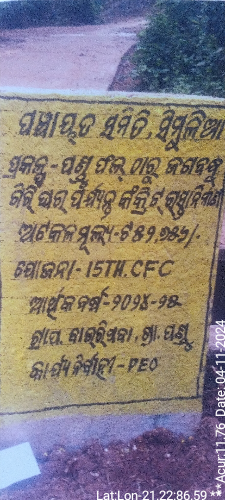 ପଞ୍ଚାୟତ ସମିତି, ସିମୁଳିଆ
ପ୍ରକଳ୍ପ - ପଣ୍ଡୁ ଘର ଠାରୁ ଜଗବନ୍ଧୁ
ଗିରି ଘର ପର୍ଯ୍ୟନ୍ତ କଂକ୍ରିଟ୍ ରାସ୍ତା ନିର୍ମାଣ
ଅଟକଳ ମୂଲ୍ୟ - ଟ
ଯୋଜନା - 15TH. CFC
ଆର୍ଥିକ ବର୍ଷ - ୨୦୨୪-୨୫
ଗ୍ରା.ପ.
କାର୍ଯ୍ୟ ନିର୍ବାହୀ - PEO
Lat:Lon-21.22:86.59
**Acur:11.76 Date: 04-11-2024